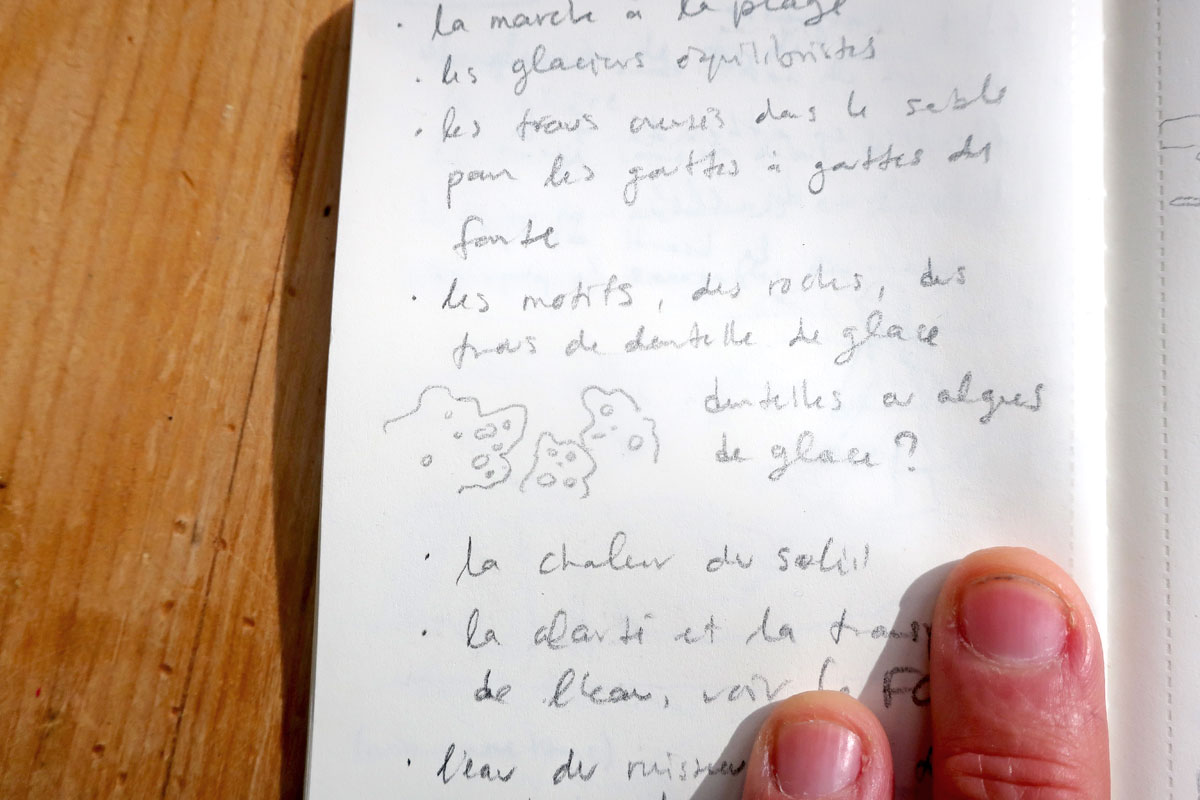 · la marche à la plage
· les glaciers équilibristes
· les trous creusés dans le sable
pour les gouttes à gouttes des
fonte
· les motifs, des roches, des
trous de dentelle de glace
dentelles ou algues
de glace ?
· la chaleur du soleil
· la clarté et la trans
de l'eau, voir le FO
· l'eau du